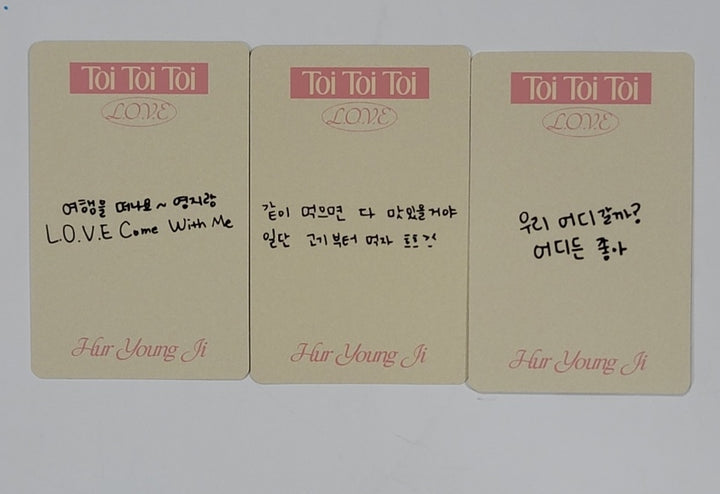 Toi Toi Toi
L.O.V.E
여행을 떠나요~ 영지랑
L.O.V.E Come With Me
Hur Young Ji
Toi Toi Toi
L.O.V.E
같이 먹으면 다 맛있을거야
일단 고기부터 먹자
Hur Young Ji
Toi Toi Toi
L.O.V.E
우리 어디갈까?
어디든 좋아
Hur Young Ji